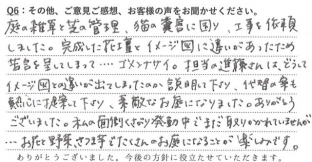 Q6：その他、ご意見ご感想、お客様の声をお聞かせください。
庭の雑草と葉の管理、猫の糞害に困り、工事を依頼
しました。完成した花壇とイメージ図に違いがあったため
苦言を呈してしまって‥‥ゴメンナサイ。担当の進藤さんは、どうして
イメージ図との違いが出てしまったのか説明して下り、代替の案も
熱心に提案して下り、素敵なお庭になりました。ありがとう
ございました。私の面倒くさがり発動中でまだ取りかかれていませんが
‥‥お花と野菜、さつま芋でたくさんのお庭になることが楽しみです。
ありがとうございました。今後の方針に役立たせていただきます。